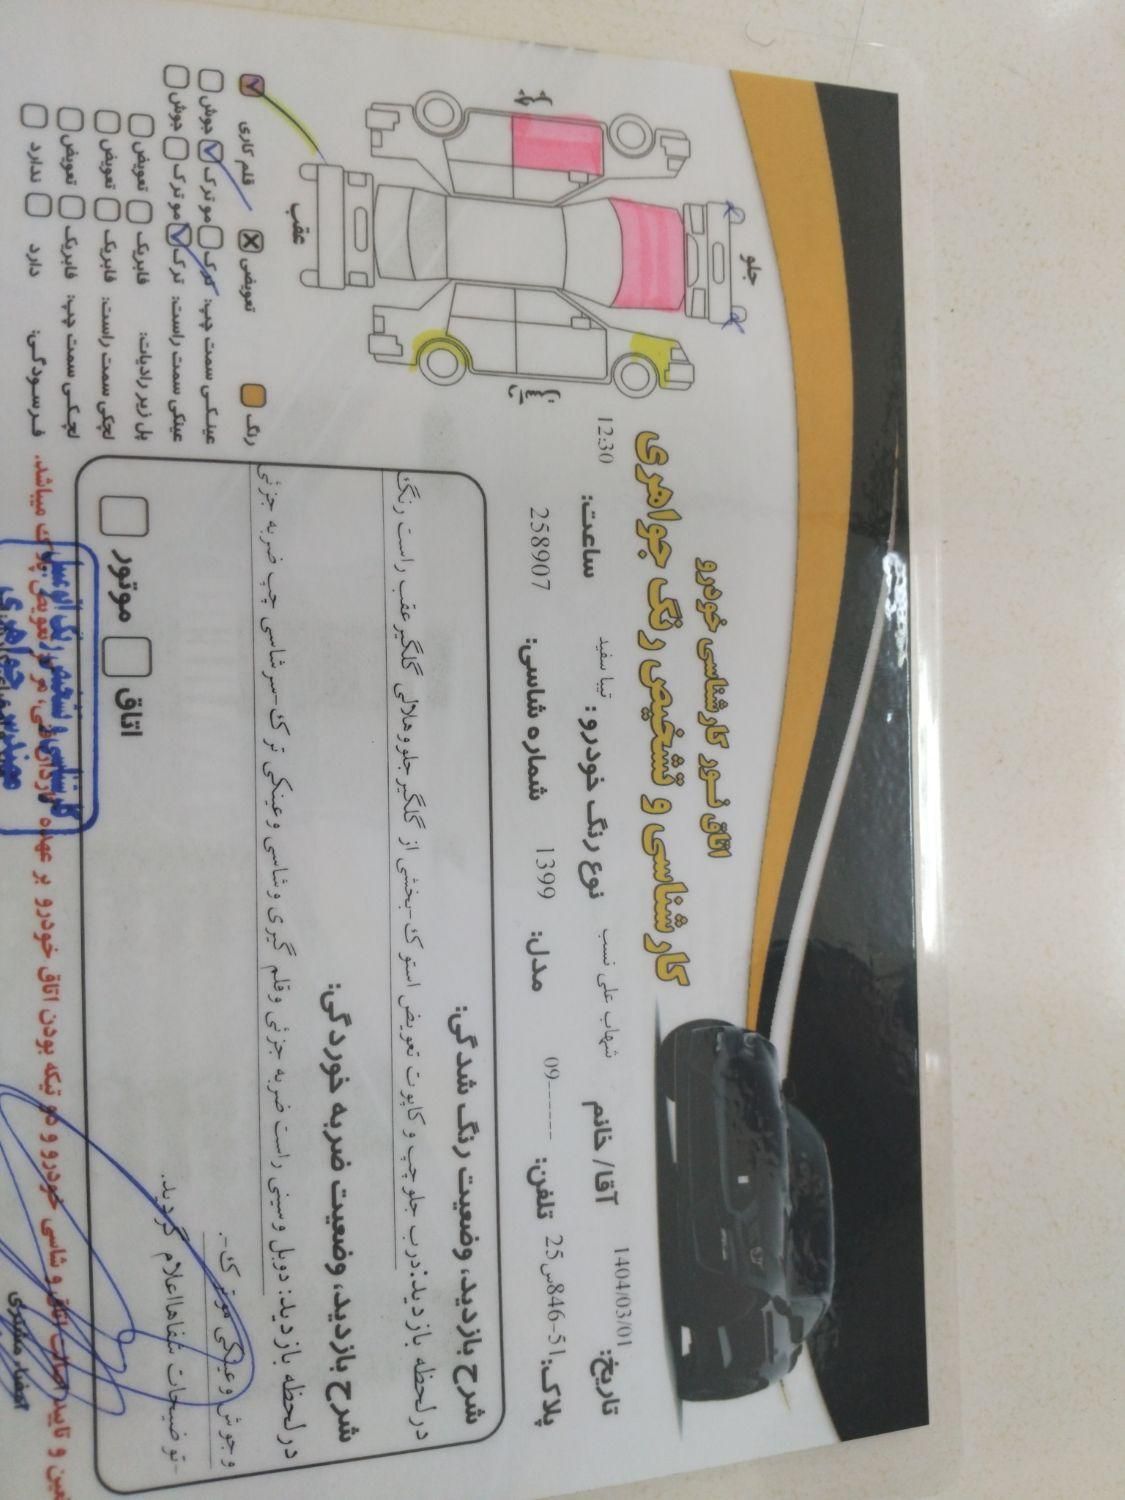 اتاق نور کارشناسی خودرو
کارشناسی و تشخیص رنگ جواهری
تاریخ: 1404/03/01 آقا/ خانم شهاب علی نسب نوع رنگ خودرو: تیبا سفید ساعت: 12:30
پلاک: 51-846س25 تلفن: 09------ مدل: 1399 شماره شاسی: 258907
شرح بازدید، وضعیت رنگ شدگی:
در لحظه بازدید: درب جلو چپ و کاپوت تعویض استوک-بخشی از گلگیر جلو و هلالی گلگیر عقب راست رنگ
شرح بازدید، وضعیت ضربه خوردگی:
در لحظه بازدید: دوبل وسینی راست ضربه جزئی وقلم گیری وشاسی وعینکی ترک-سرشاسی چپ ضربه جزئی
وجوش وعینکی موترک-.
-توضیحات شفاهااعلام گردید.
اتاق موتور
جلو
عقب
رنگ تعویضی X قلم کاری
عینکی سمت چپ: ترک موترک جوش
عینکی سمت راست: ترک موترک جوش
پل زیر رادیات: فابریک تعویض
لچکی سمت راست: فابریک تعویض
لچکی سمت چپ: فابریک تعویض
فرسودگی: دارد ندارد
تعیین و تایید اصالت اتاق و شاسی خودرو و دو تیکه بودن اتاق خودرو بر عهده
تعویض پلاک میباشد.
کارشناسی و تشخیص رنگ اتومبیل
مهندس جواهری
امضاء مشتری